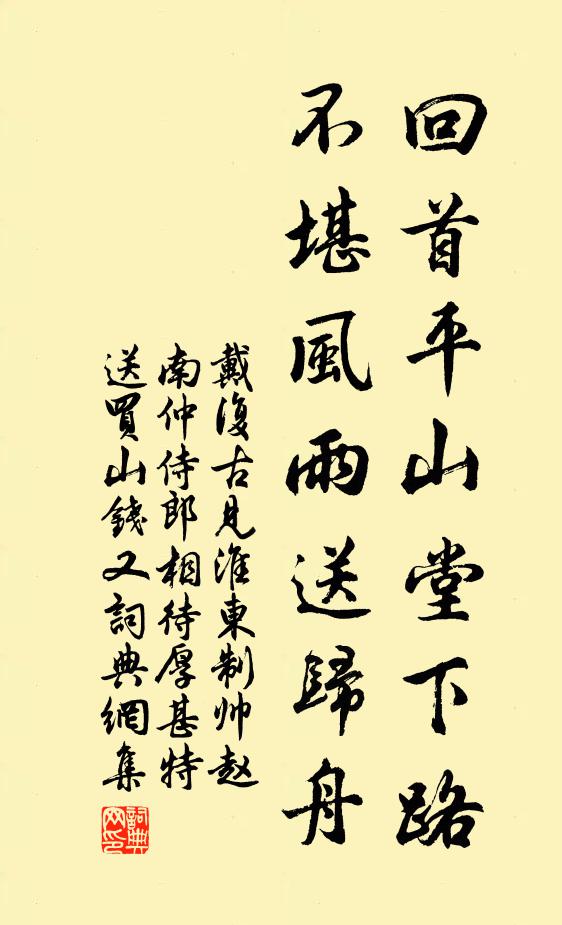 回首平山堂下路
不堪風雨送歸舟
戴復古見淮東制帅赵
南仲侍郎相待厚甚特
送買山錢又詞典網集
詞典
网印